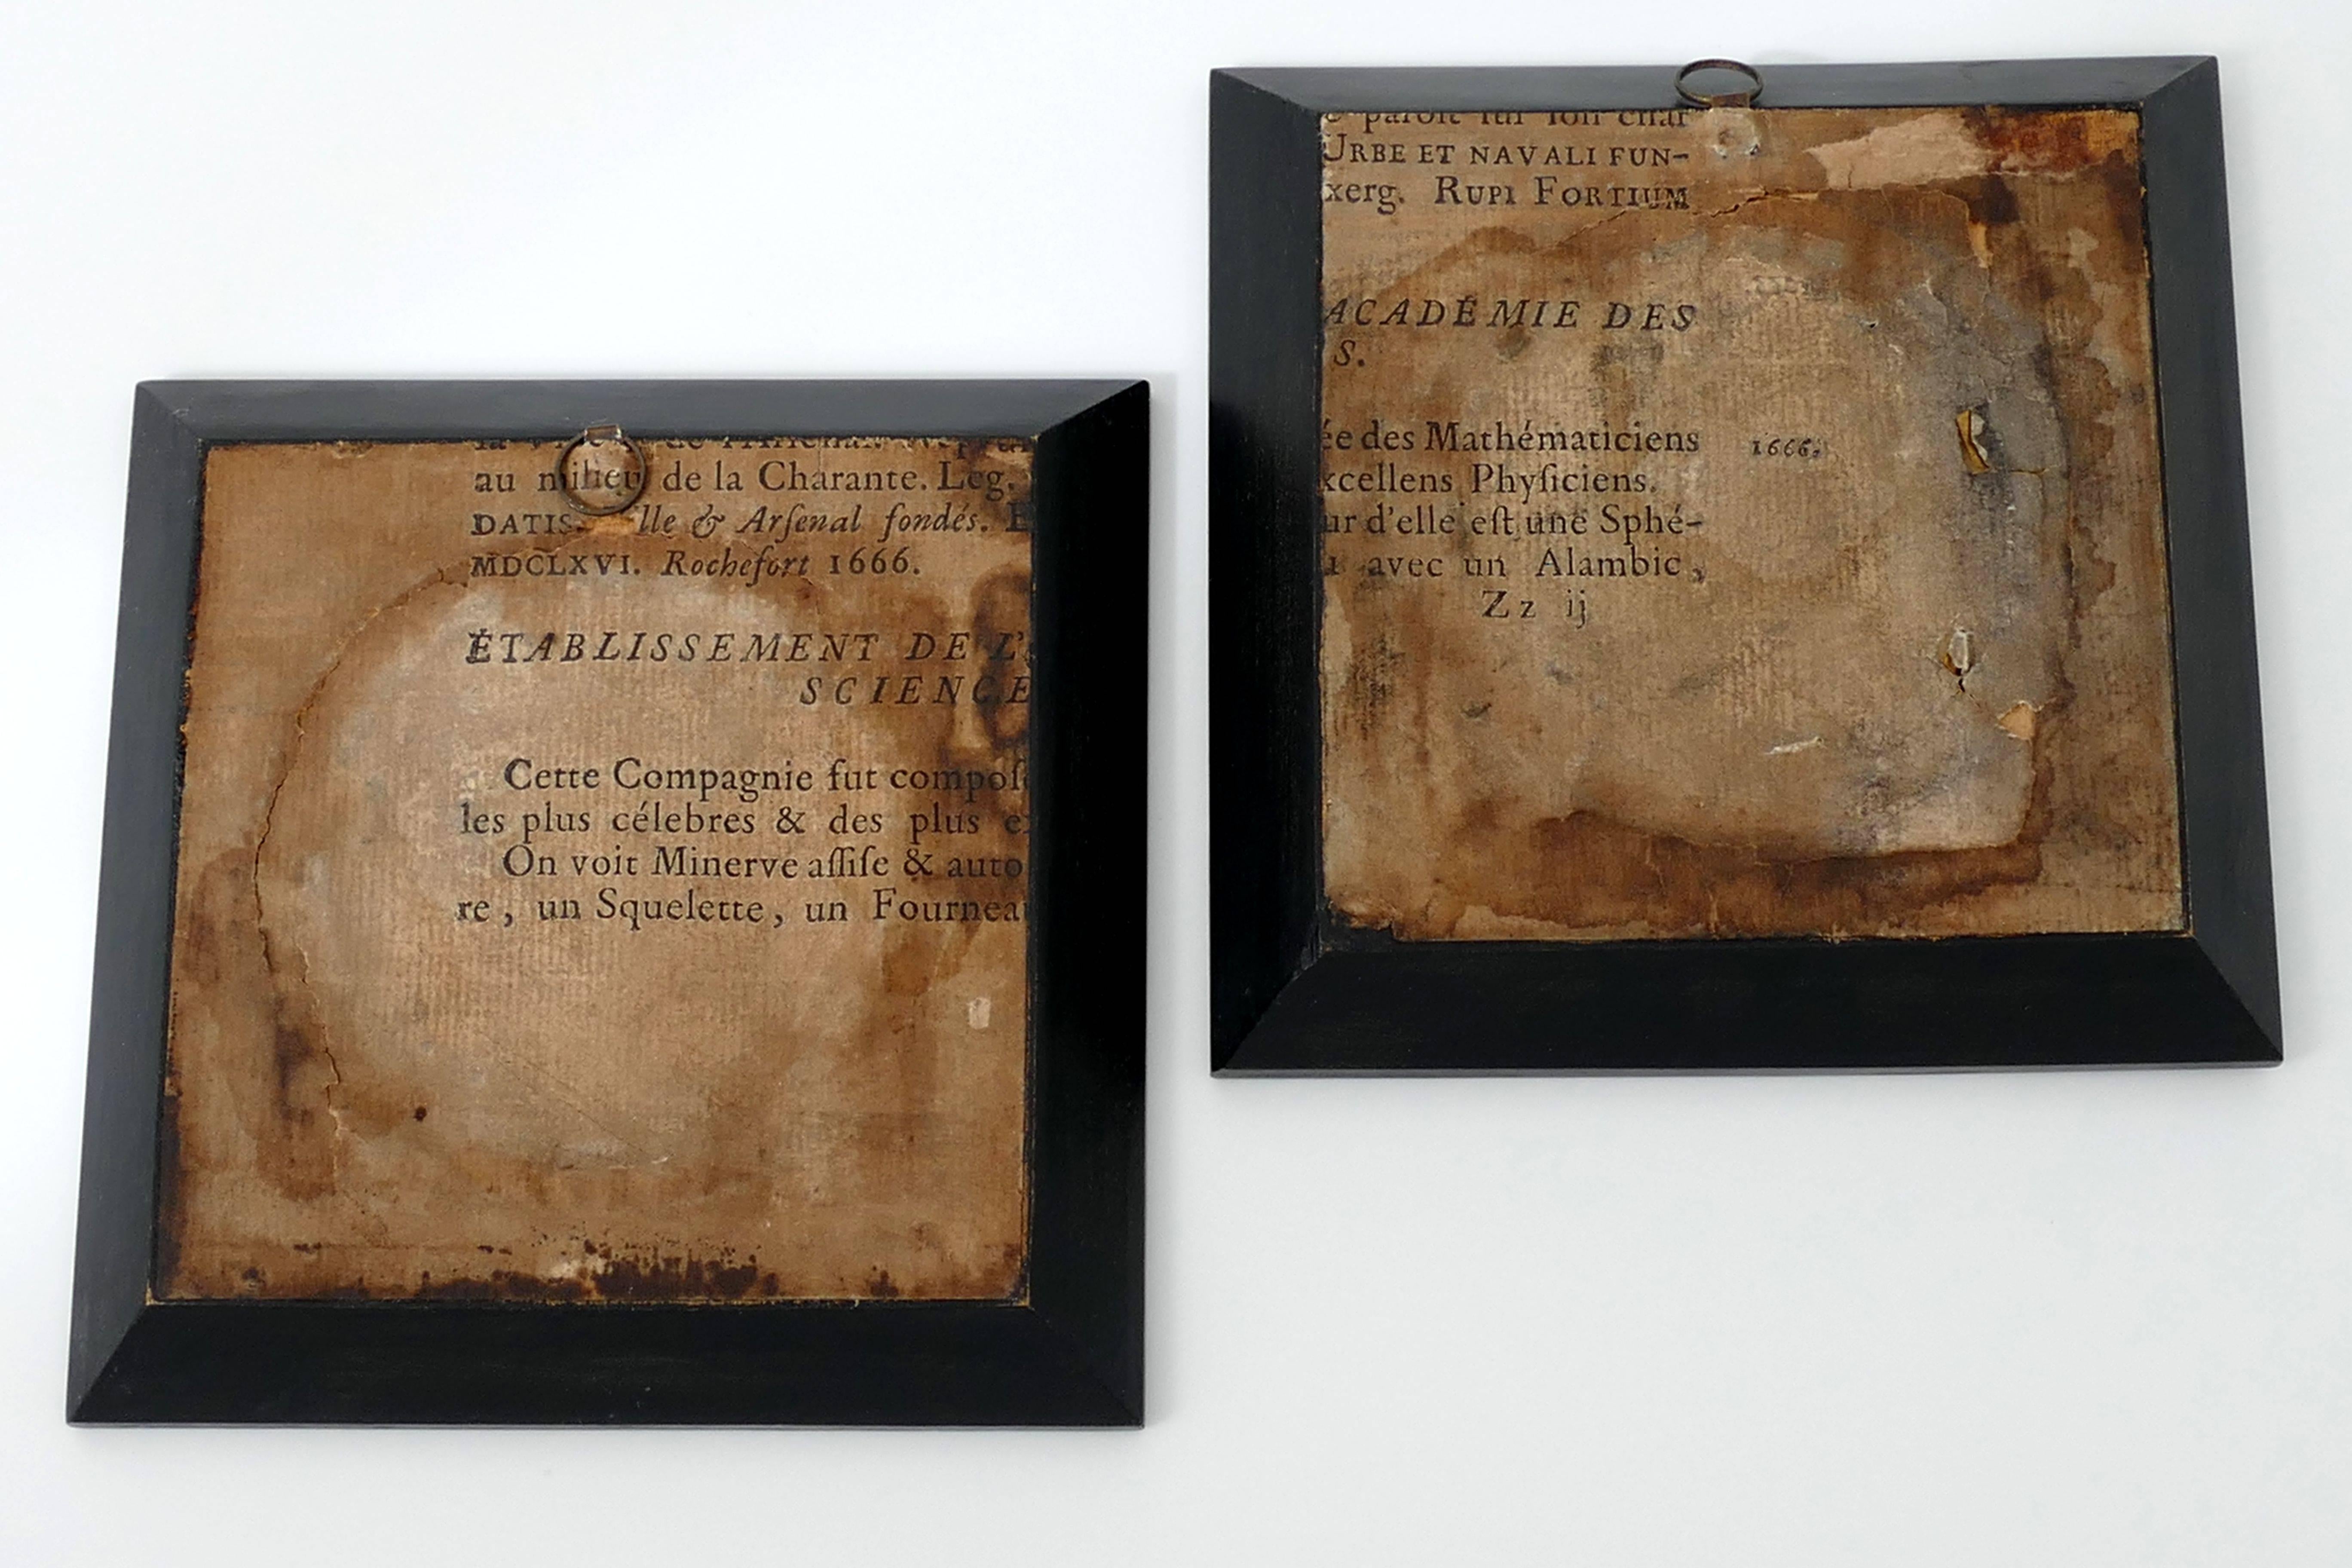 de
au milieu de la Charante. Leg.
DATIS. lle & Arſenal fondés. E
MDCLXVI. Rochefort 1666.
ÉTABLISSEMENT DE L'
SCIENCE
Cette Compagnie fut compoſ
les plus célebres & des plus e
On voit Minerve aſſiſe & auto
re, un Squelette, un Fournea
paroît ſur ſon char
URBE ET NAVALI FUN-
xerg. RUPI FORTIUM
ACADÉMIE DES
S.
ée des Mathématiciens 1666.
xcellens Phyſiciens.
ur d'elle eſt une Sphé-
avec un Alambic,
Zz ij